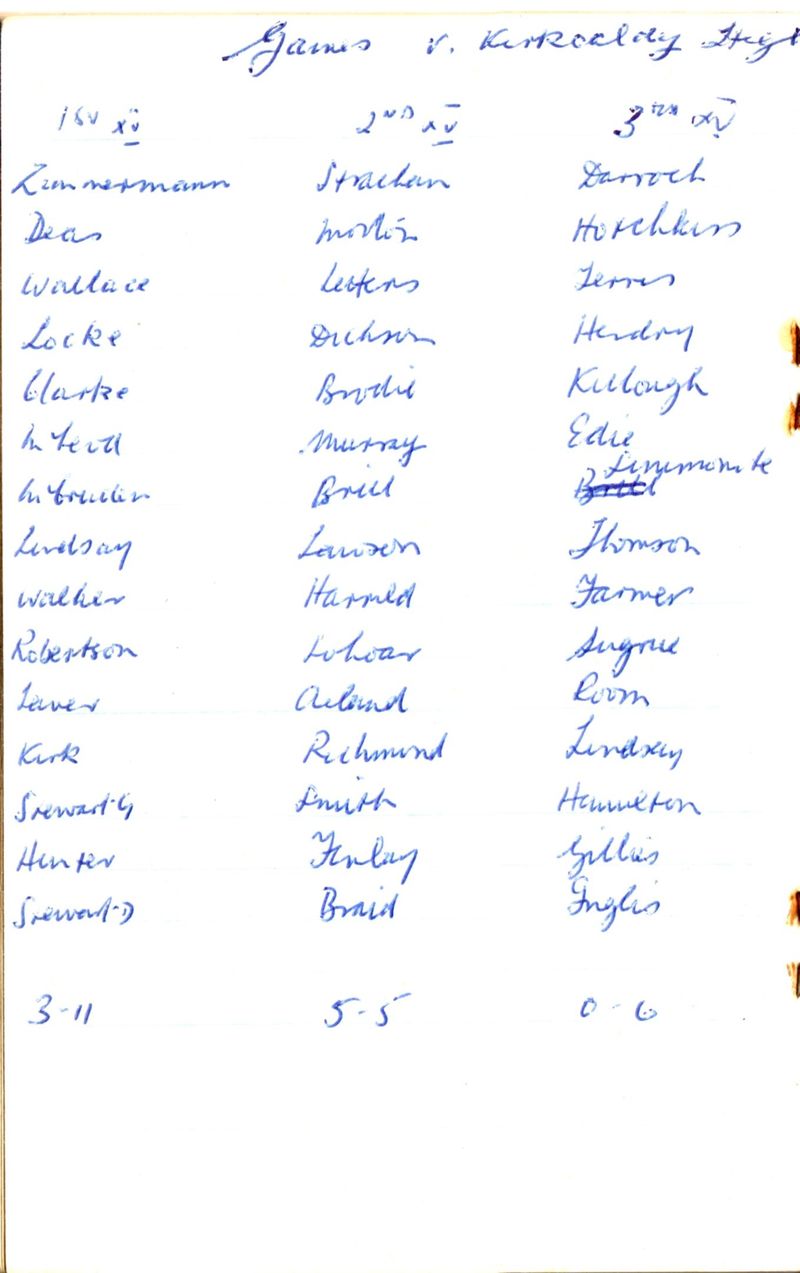 Games v. Kirkcaldy High
1st XV 2ND XV 3RD XV
Zimmermann Strachan Darroch
Deas Morton Hotchkiss
Wallace Letters Ferris
Locke Dickson Hendry
Clarke Brodie Killough
McLeod Murray Edie
Linemonite
Brill Brill
Lindsay Lawson Thomson
Walker Harrild Farmer
Robertson Lohoar Sugrue
Laver Acland Room
Kirk Richmond Lindsay
Stewart·G Smith Hamilton
Hunter Finlay Gillies
Stewart·D Braid Inglis
3-11 5-5 0-6